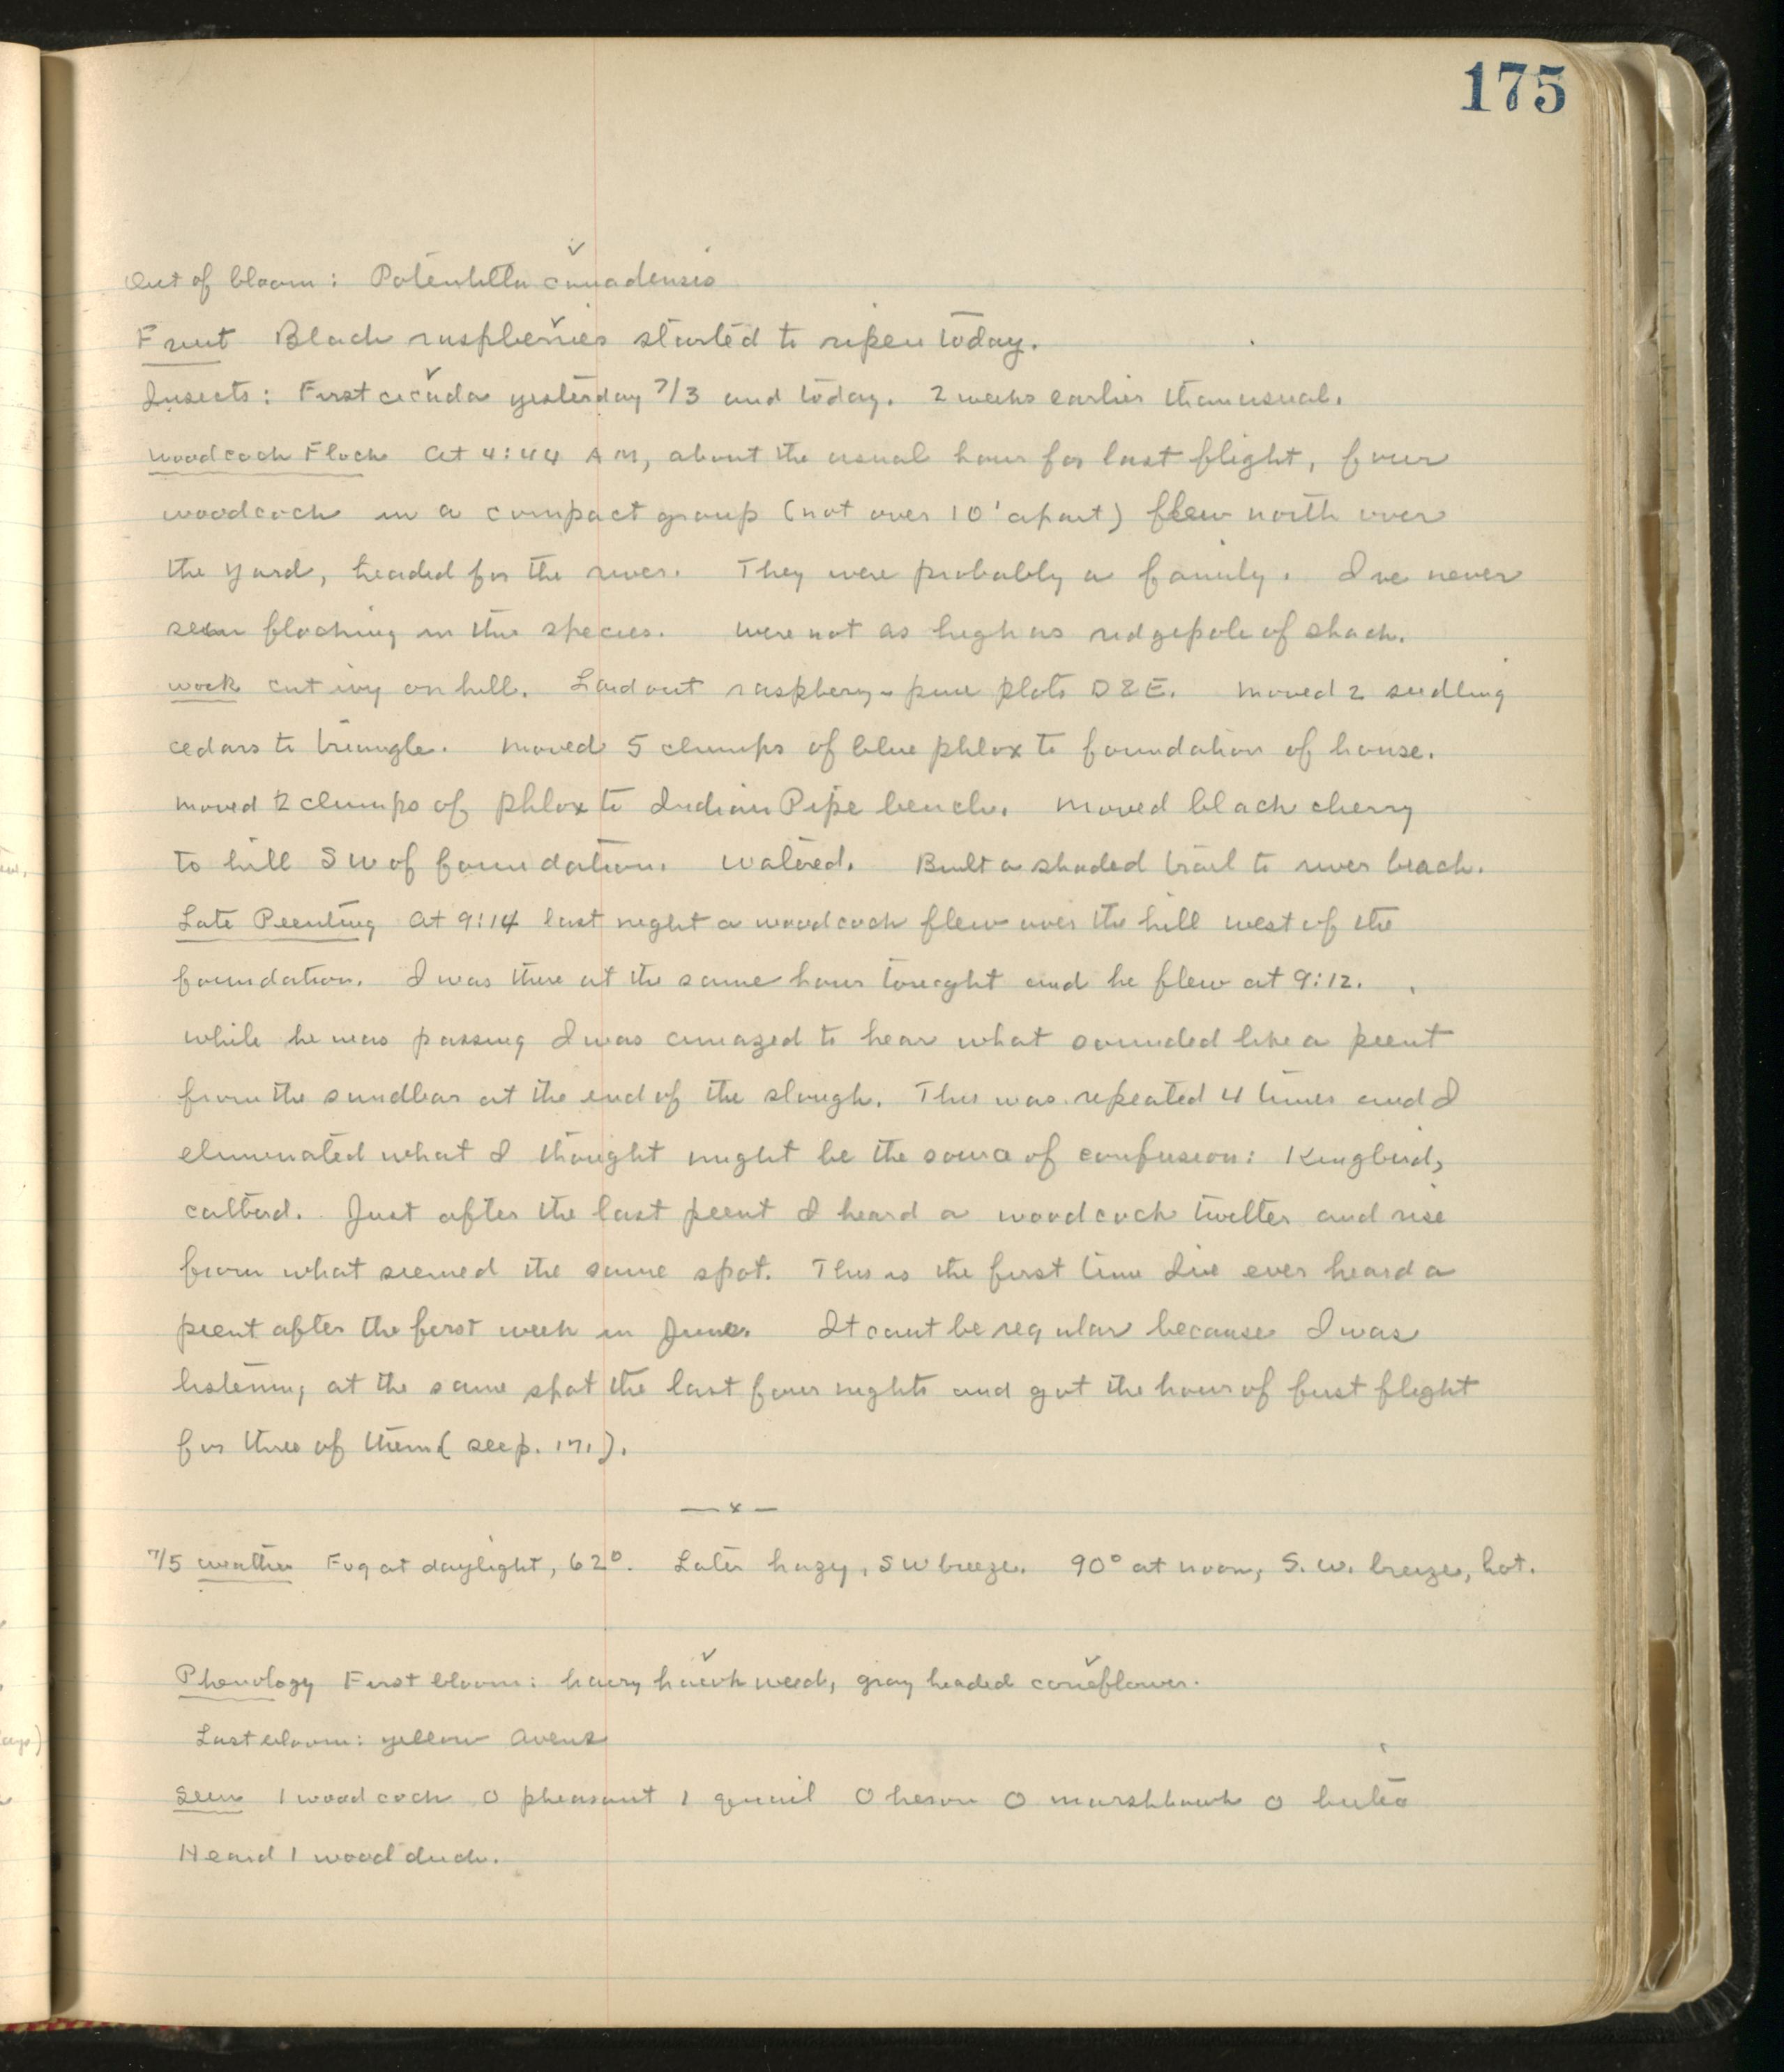 175
Out of bloom: Potentilla canadensis
Fruit Black raspberries started to ripen today.
Insects: First cicada yesterday 7/3 and today. 2 weeks earlier than usual.
Woodcock Flock At 4:44 AM, about the usual hour for last flight, four
woodcock in a compact group (not over 10' apart) flew north over
the yard, headed for the river. They were probably a family. I've never
seen flocking in this species. Were not as high as ridgepole of shack.
Work Cut ivy on hill. Laid out raspberry - pine plots D & E. Moved 2 seedling
cedars to triangle. Moved 5 clumps of blue phlox to foundation of house.
Moved 2 clumps of phlox to Indian Pipe bench. Moved black cherry
to hill SW of foundation. Watered. Built a shaded trail to river beach.
Late Peenting At 9:14 last night a woodcock flew over the hill west of the
foundation. I was there at the same hour tonight and he flew at 9:12.
While he was passing I was amazed to hear what sounded like a peent
from the sandbar at the end of the slough. This was repeated 4 times and I
eliminated what I thought might be the source of confusion: Kingbird,
catbird. Just after the last peent I heard a woodcock twitter and rise
from what seemed the same spot. This is the first time I've ever heard a
peent after the first week in June. It cant be regular because I was
listening at the same spot the last four nights and got the hour of first flight
for three of them (see p. 171).
— x —
7/5 Weather Fog at daylight, 62°. Later hazy, SW breeze. 90° at noon, S.W. breeze, hot.
Phenology First bloom: hairy hawkweed, gray headed coneflower.
Last bloom: yellow avens
Seen 1 woodcock 0 pheasant 1 quail 0 heron 0 marshhawk 0 buteo
Heard 1 wood duck.